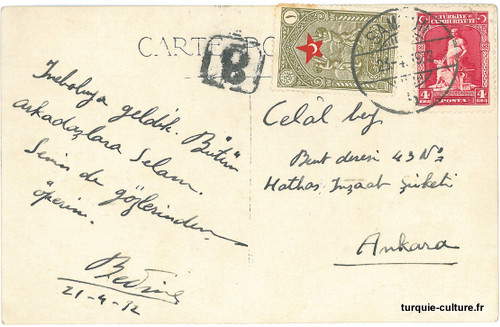 CARTE PO
B
1
TÜRKİYE
CUMHURİYETİ
4 POSTA 4
İneboluya geldik. Bütün
arkadaşlara Selam.
Senin de gözlerinden
öperim.
21-4-32
Celâl bey
Bent deresi 43 No
İnşaat Şirketi
Ankara
turquie-culture.fr